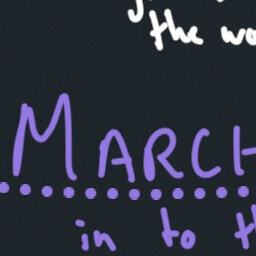 the wo
MARCH
in to th